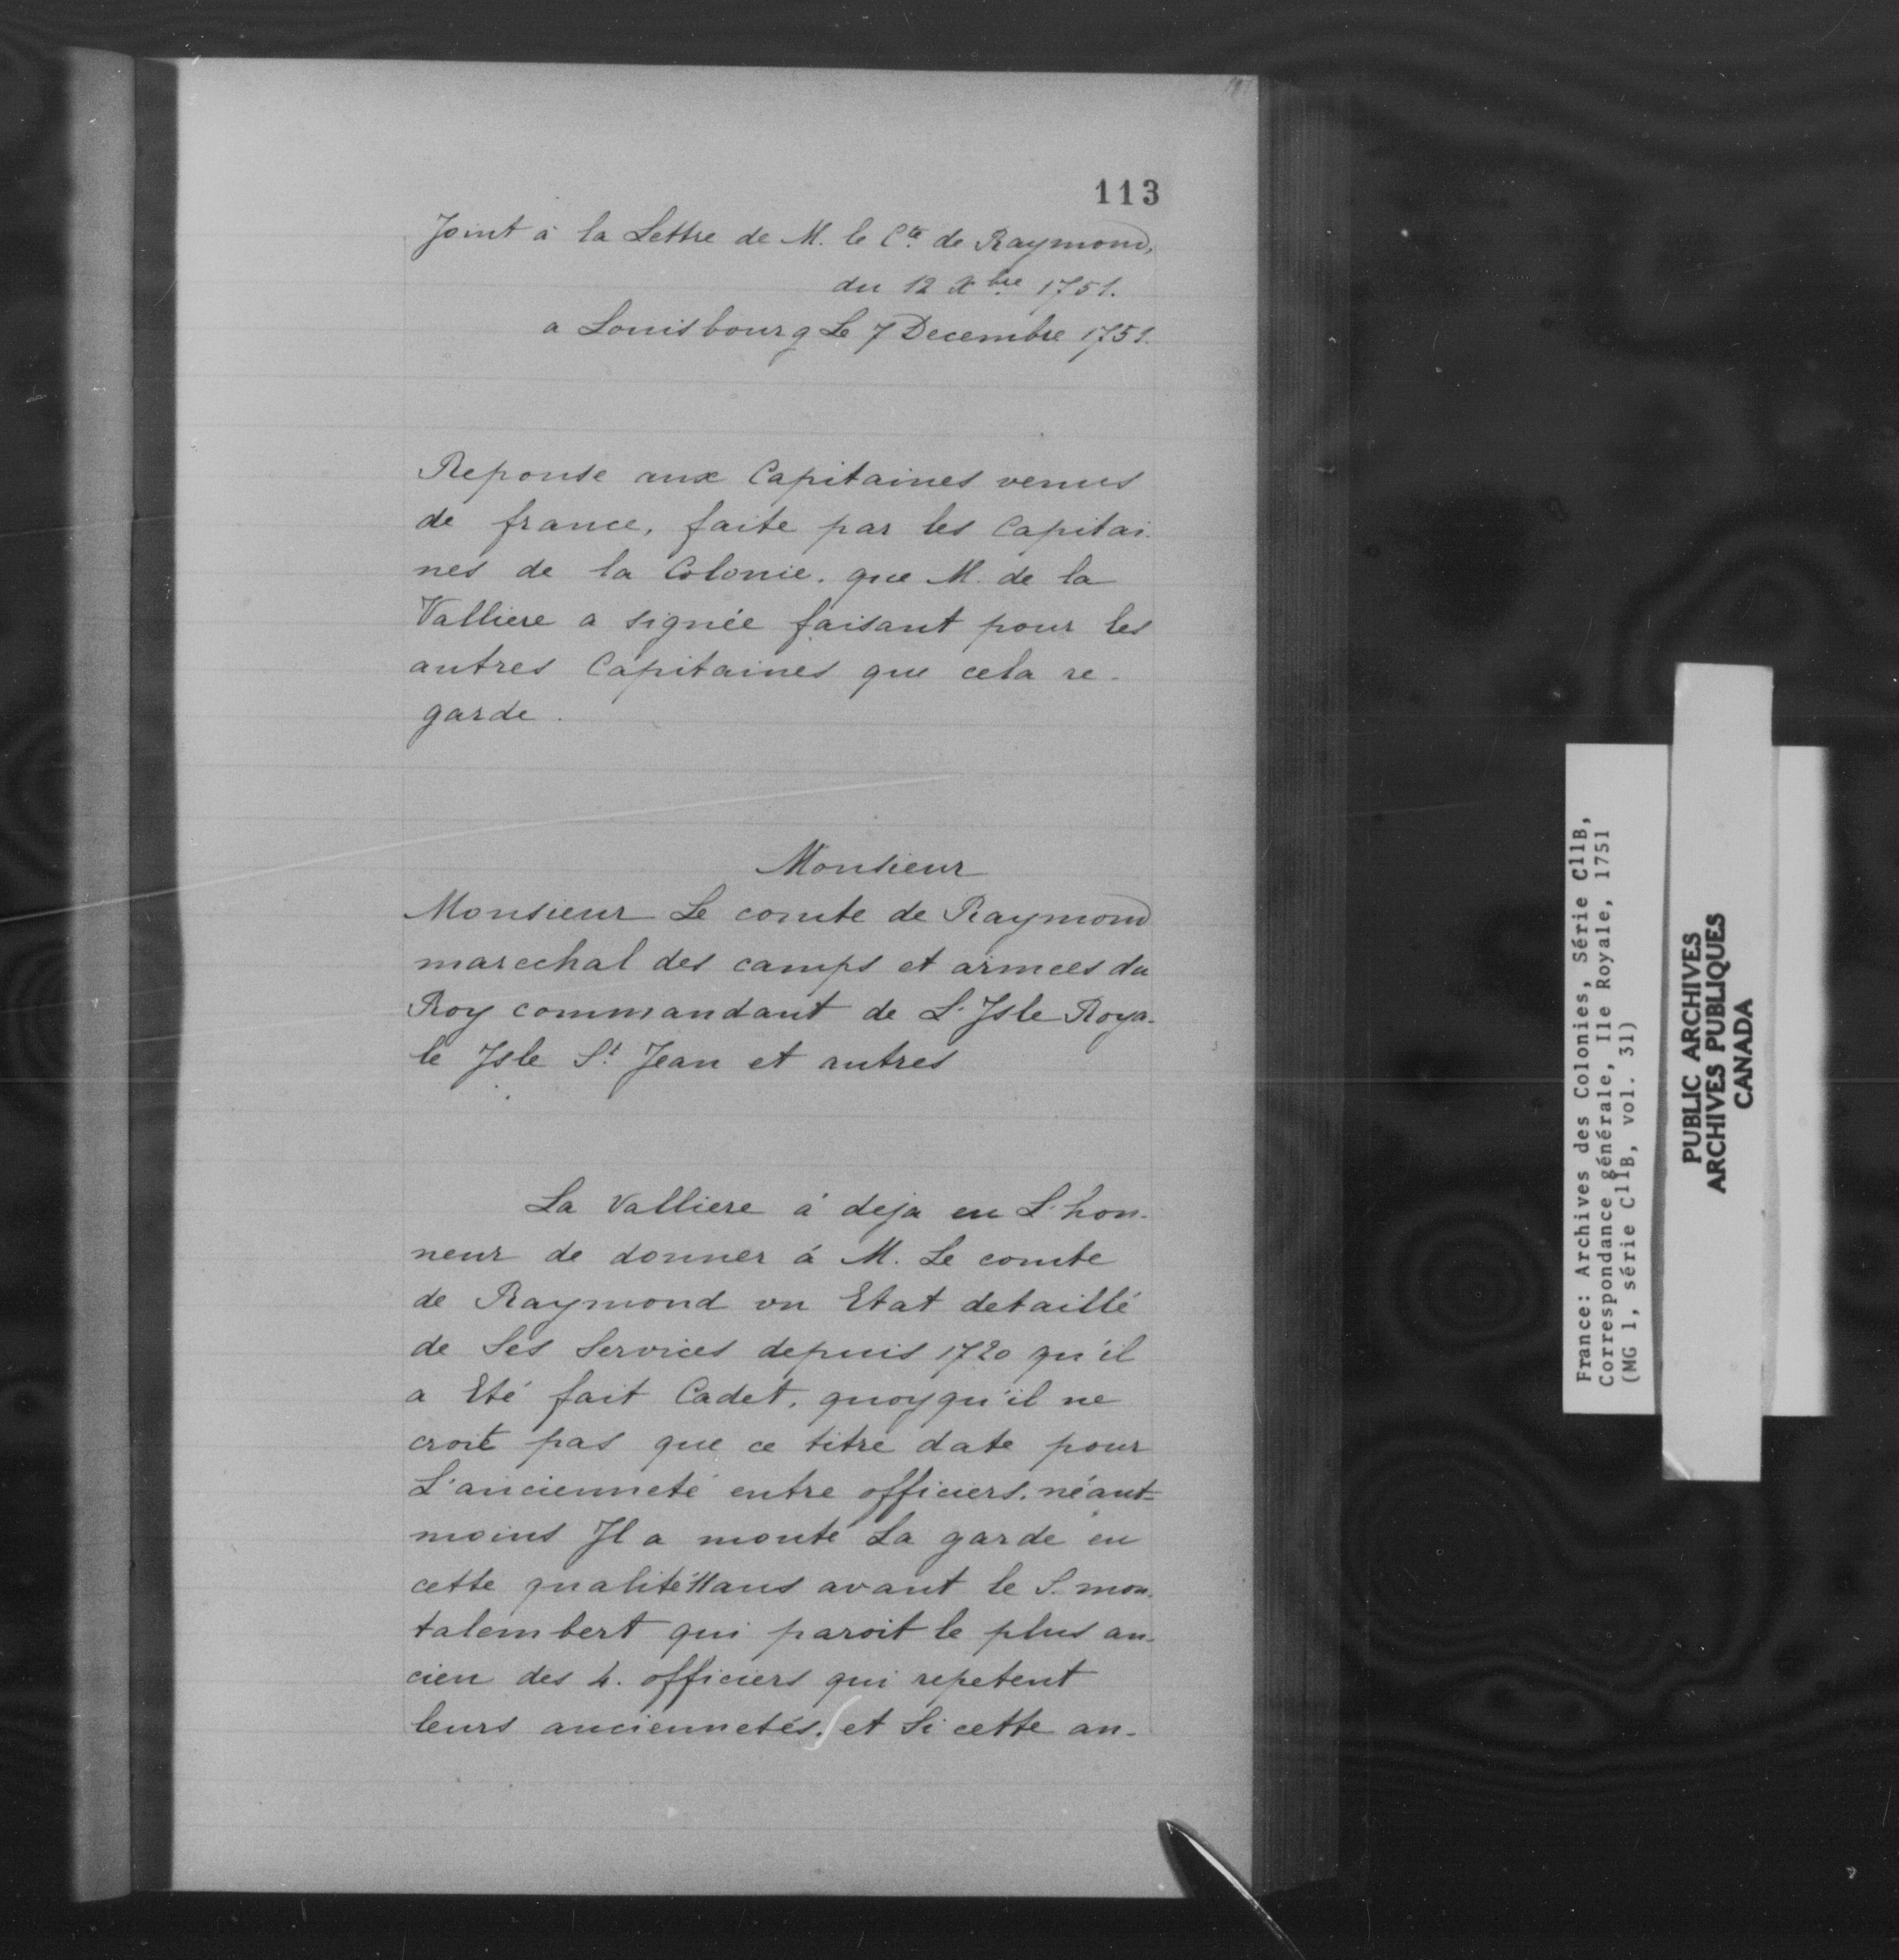 113
Joint à la Lettre de M. le Cte de Raymond,
du 12 Xbre 1751.
a Louisbourg Le 7 Decembre 1751.
Reponse aux Capitaines venus
de france, faite par les Capitai-
nes de la Colonie. que M. de la
Valliere a signée faisant pour les
autres Capitaines que cela re-
garde.
Monsieur
Monsieur Le comte de Raymond
marechal des camps et armees du
Roy commandant de L'Isle Roya-
le Isle St Jean et autres
La Valliere á deja eu L'hon-
neur de donner á M. Le comte
de Raymond un Etat detaillé
de Ses Services depuis 1720 qu'il
a Eté fait Cadet, quoyqu'il ne
croit pas que ce titre date pour
L'ancienneté entre officiers. néant-
moins Il a monté La garde en
cette qualité 11 ans avant le S. mon-
talembert qui paroit le plus an-
cien des 4. officiers qui repetent
leurs anciennetés. et Si cette an-
France: Archives des Colonies, Série C11B,
Correspondance générale, Ile Royale, 1751
(MG 1, série C11B, vol. 31)
PUBLIC ARCHIVES
ARCHIVES PUBLIQUES
CANADA